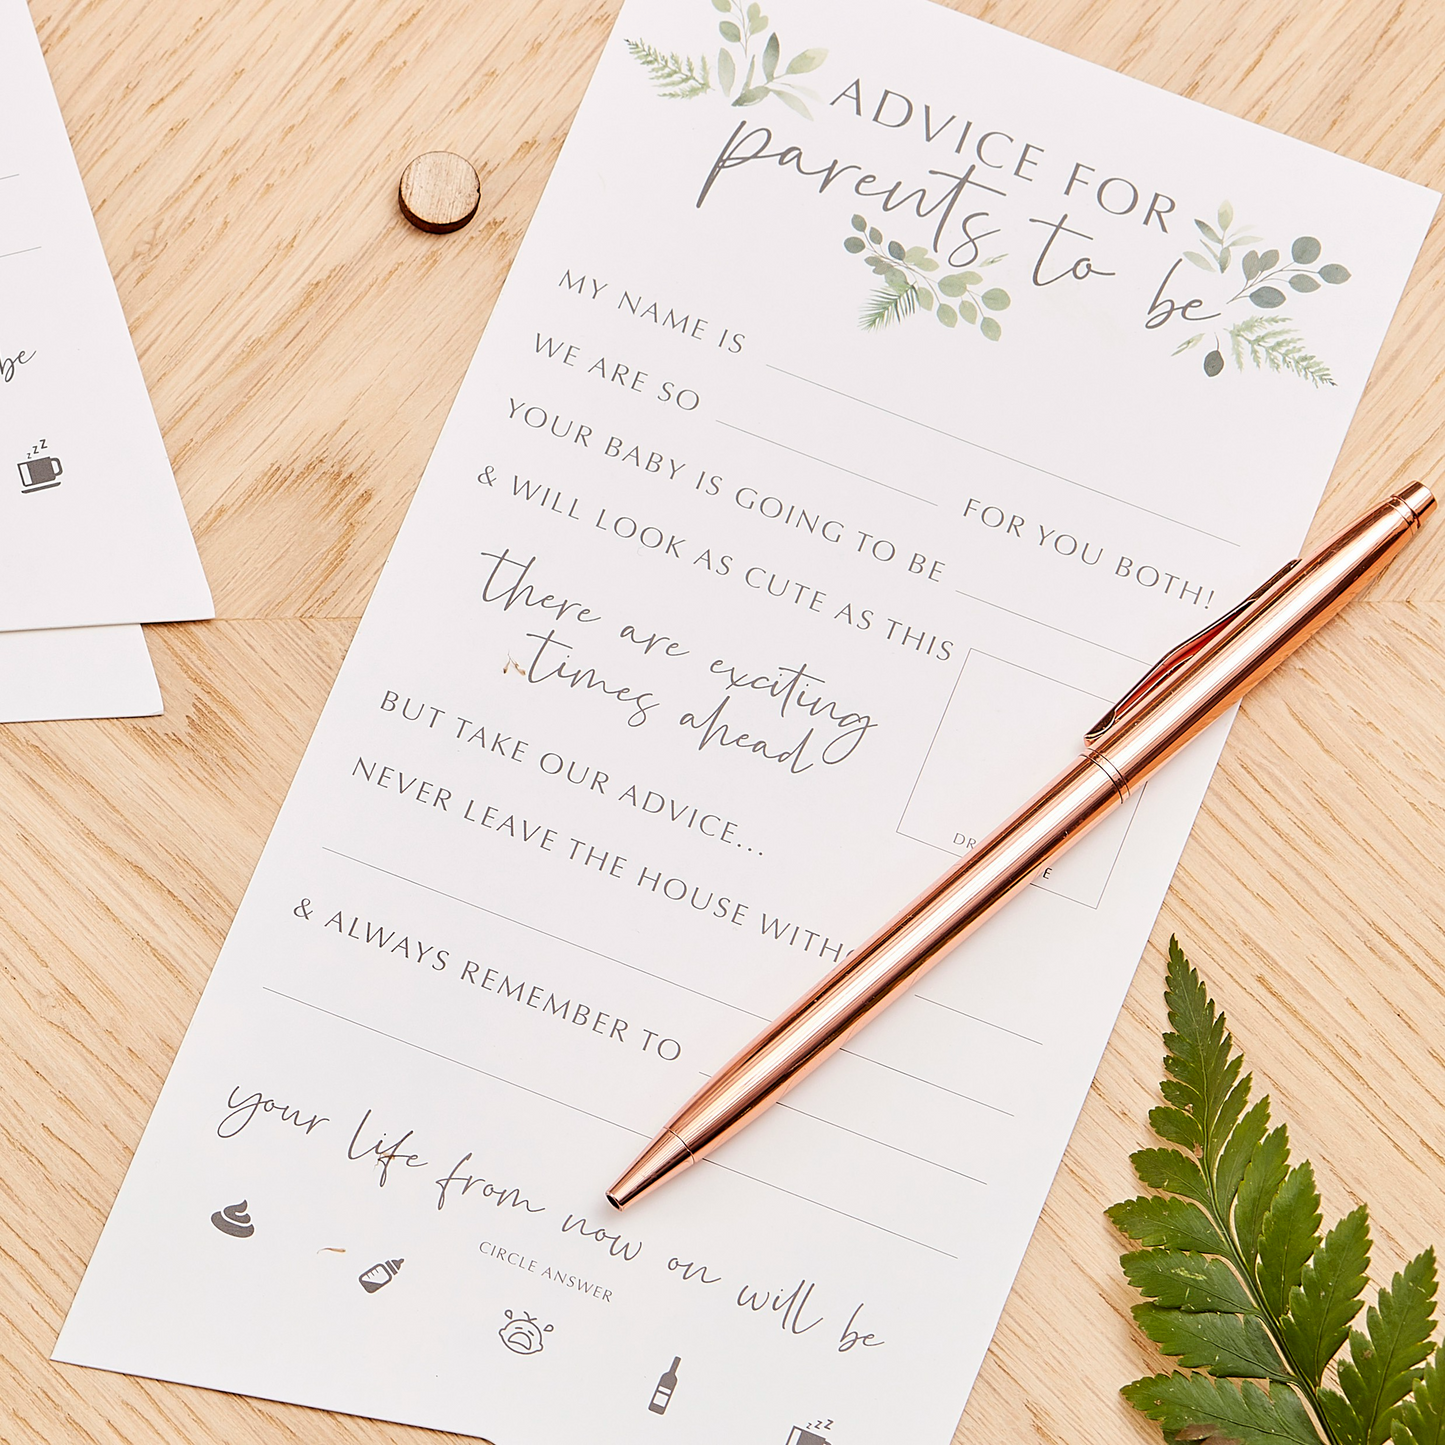 ADVICE FOR
parents to be
MY NAME IS
WE ARE SO FOR YOU BOTH!
YOUR BABY IS GOING TO BE
& WILL LOOK AS CUTE AS THIS
there are exciting
times ahead
BUT TAKE OUR ADVICE...
NEVER LEAVE THE HOUSE
& ALWAYS REMEMBER TO
your life from now on will be
CIRCLE ANSWER
zzz
be
zzz